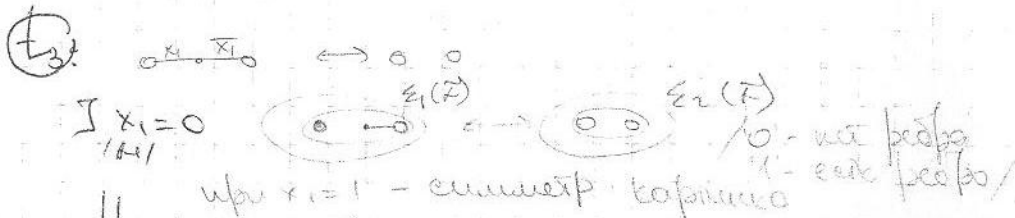 t₃: x₁ x̄₁ ↔
] x₁ = 0 Σ₁(x̃) ↔ Σ₂(x̃) /0 - нет ребра
1 - есть ребро/
при x₁ = 1 - симметр. картинка